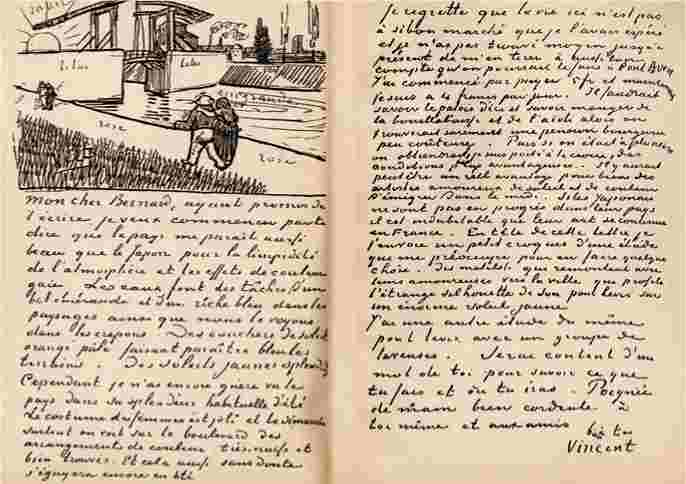 lilas
lilas
rose
rose
Mon cher Bernard, ayant promis de
t'écrire je veux commencer par te
dire que le pays me parait aussi
beau que le Japon pour la limpidité
de l'atmosphère et les effets de couleur
gaie. Les eaux font des taches d'un
bel émeraude et d'un riche bleu dans les
paysages ainsi que nous le voyons
dans les crepons. Des couchers de soleil
orangé pâle faisant paraître bleu les
terrains. Des soleils jaunes splendides
Cependant je n'ai encore guère vu le
pays dans sa splendeur habituelle d'été
Le costume des femmes est joli et le dimanche
surtout on voit sur le boulevard des
arrangements de couleur très naïfs et
bien trouvés. Et cela aussi sans doute
s'égayera encore en été
Je regrette que la vie ici n'est pas
à si bon marché que je l'avais espéré
et je n'ai pas trouvé moyen jusqu'à
présent de m'en tirer à aussi bon
compte qu'on pourrait le faire à Pont Aven
J'ai commencé par payer 5 fr et maintenant
je suis à 4 francs par jour. Il faudrait
savoir le patois d'ici et savoir manger de
la bouillabaisse et de l'aioli alors on
trouverait surement une pension bourgeoise
peu coûteuse. Puis si on était à plusieurs
on obtiendrait, je suis porté à le croire, des
conditions plus avantageuses. Il y aurait
peutêtre un réel avantage pour bien des
artistes amoureux de soleil et de couleur
d'émigrer dans le midi. Si les Japonais
ne sont pas en progrès dans leur pays
il est indubitable que leur art se continue
en France. En tête de cette lettre je
t'envoie un petit croquis d'une étude
qui me préoccupe pour en faire quelque
chose. Des matelots qui remontent avec
leurs amoureuses vers la ville qui profile
l'étrange silhouette de son pont levis sur
un énorme soleil jaune
J'ai une autre étude du même
pont levis avec un groupe de
laveuses. Serai content d'un
mot de toi pour savoir ce que
tu fais et où tu iras. Poignée
de main bien cordiale à
toi même et aux amis
b. à t.
Vincent